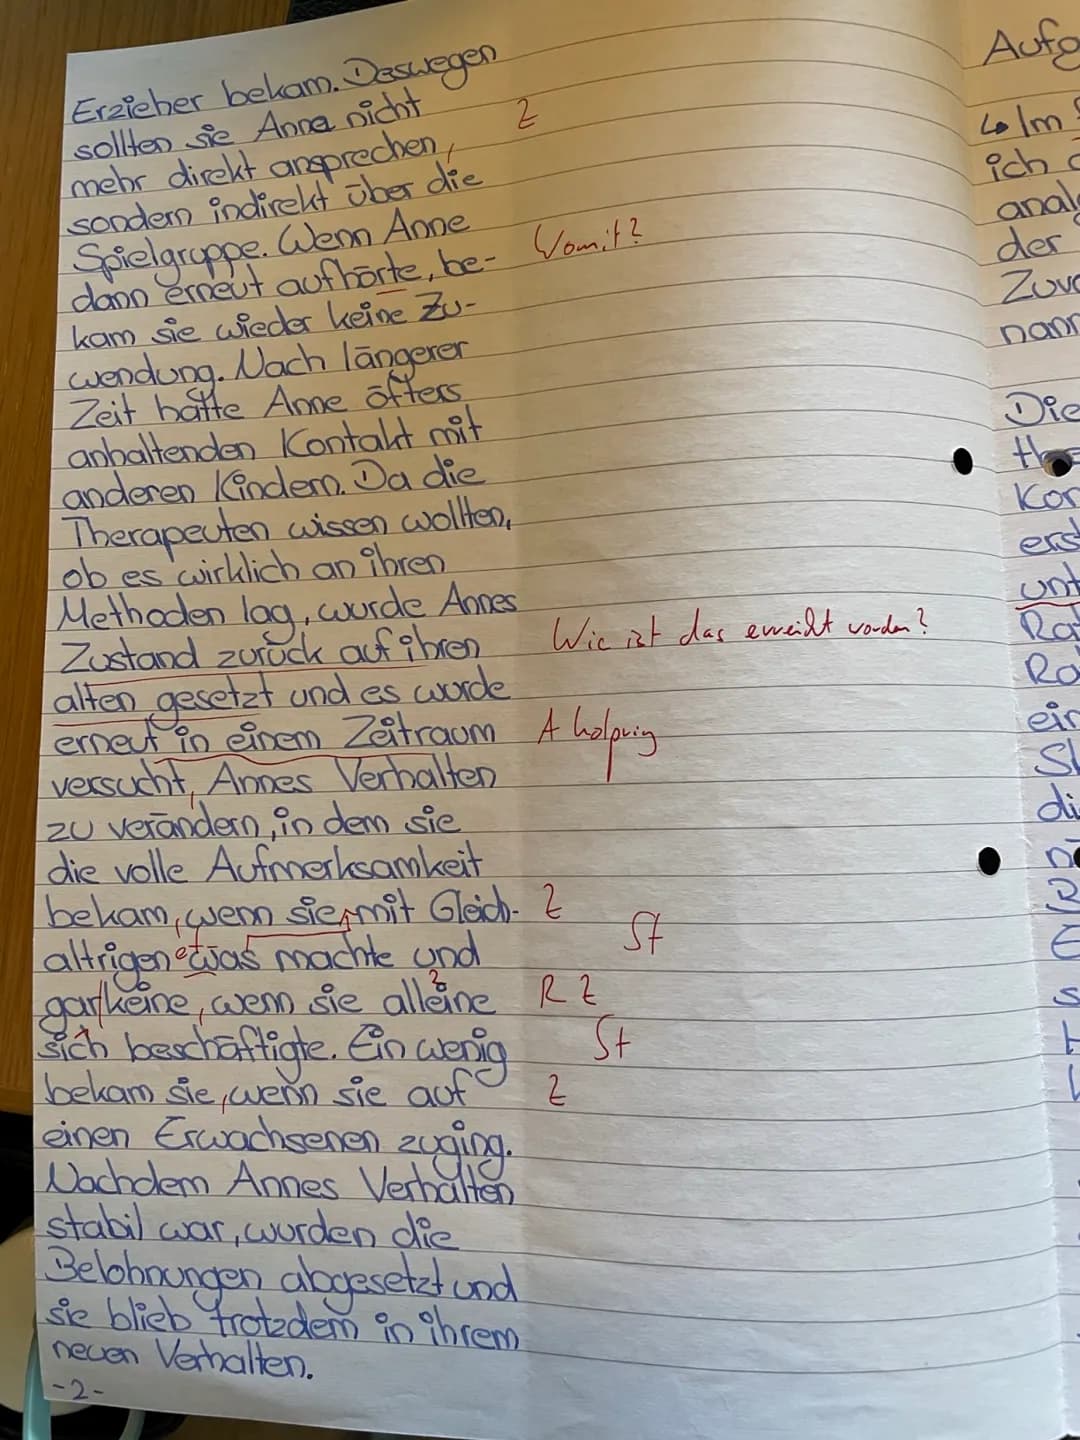 Erzieher bekam. Deswegen
sollten sie Anne nicht Z
mehr direkt ansprechen,
sondern indirekt über die
Spielgruppe. Wenn Anne
dann erneut aufhörte, be- Womit?
kam sie wieder keine Zu-
wendung. Nach längerer
Zeit hatte Anne öfters
anhaltenden Kontakt mit
anderen Kindern. Da die
Therapeuten wissen wollten,
ob es wirklich an ihren
Methoden lag, wurde Annes
Zustand zurück auf ihren Wie ist das erreicht worden?
alten gesetzt und es wurde
erneut in einem Zeitraum A holprig
versucht, Annes Verhalten
zu verändern, in dem sie
die volle Aufmerksamkeit
bekam, wenn sie mit Gleich- Z
altrigen etwas machte und St
gar keine, wenn sie alleine R Z
sich beschäftigte. Ein wenig St
bekam sie, wenn sie auf Z
einen Erwachsenen zuging.
Nachdem Annes Verhalten
stabil war, wurden die
Belohnungen abgesetzt und
sie blieb trotzdem in ihrem
neuen Verhalten.
-2-
Im
ich
der
Die